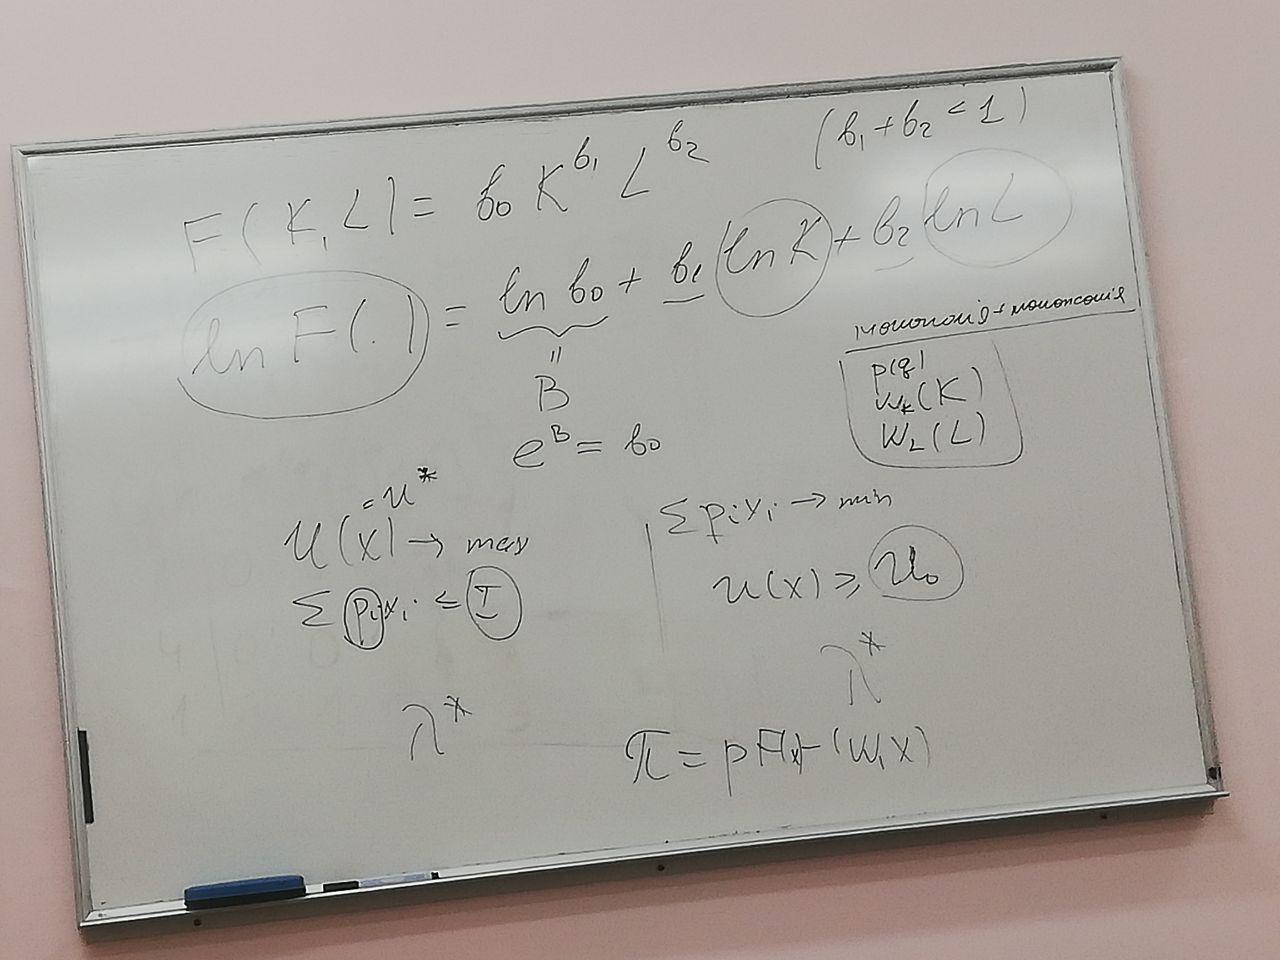 F(K,L) = b₀ K^b₁ L^b₂ (b₁ + b₂ < 1)
ln F(.) = ln b₀ + b₁ ln K + b₂ ln L
"
B
e^B = b₀
монополія + монопсонія
p(q)
w_K(K)
w_L(L)
= u*
u(x) → max
Σ pᵢxᵢ ≤ I
λ*
Σ pᵢxᵢ → min
u(x) ≥ u₀
λ*
π = pF(x) - (w, x)